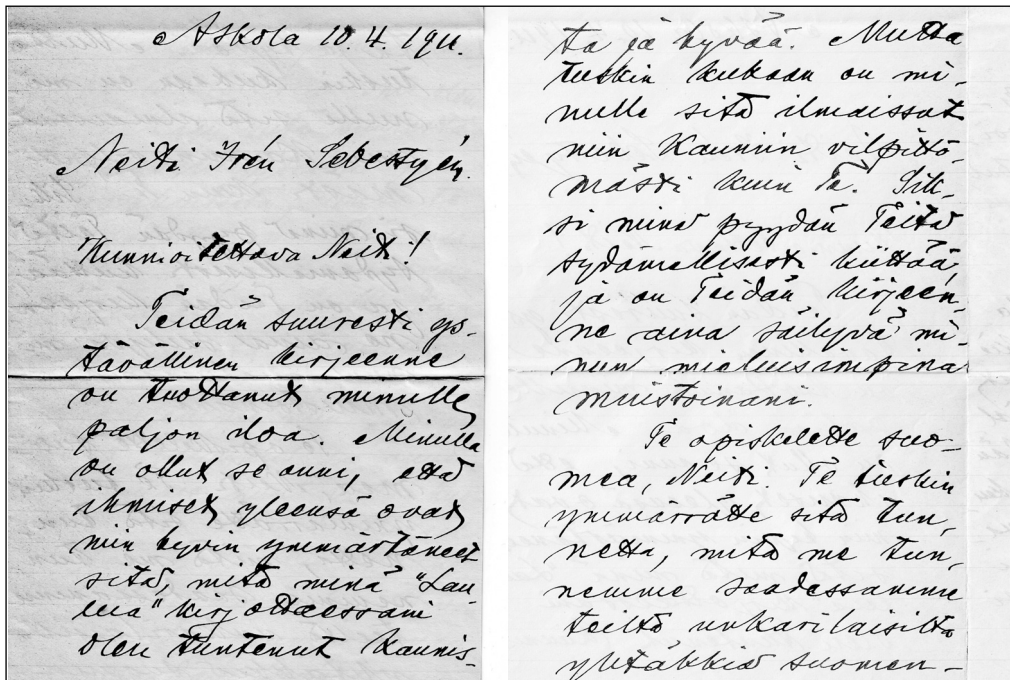 Askola 10.4.1911.
Neiti Irén Sebestyén.
Kunnioitettava Neiti!
Teidän suuresti ys-
tävällinen kirjeenne
on tuottanut minulle
paljon iloa. Minulla
on ollut se onni, että
ihmiset yleensä ovat
niin hyvin ymmärtäneet
sitä, mitä minä "Lau-
lua" kirjottaessani
olen tuntenut kaunis-
ta ja hyvää. Mutta
tuskin kukaan on mi-
nulle sitä ilmaissut
niin kauniin vilpittö-
mästi kuin Te. Sik-
si minä pyydän Teitä
sydämellisesti kiittää,
ja on Teidän kirjeen-
ne aina säilyvä mi-
nun mieluisimpina
muistoinani.
Te opiskelette suo-
mea, Neiti. Te tuskin
ymmärrätte sitä tun-
netta, mitä me tun-
nemme saadessamme
teiltä unkarilaisilta
yhtäkkiä suomen-